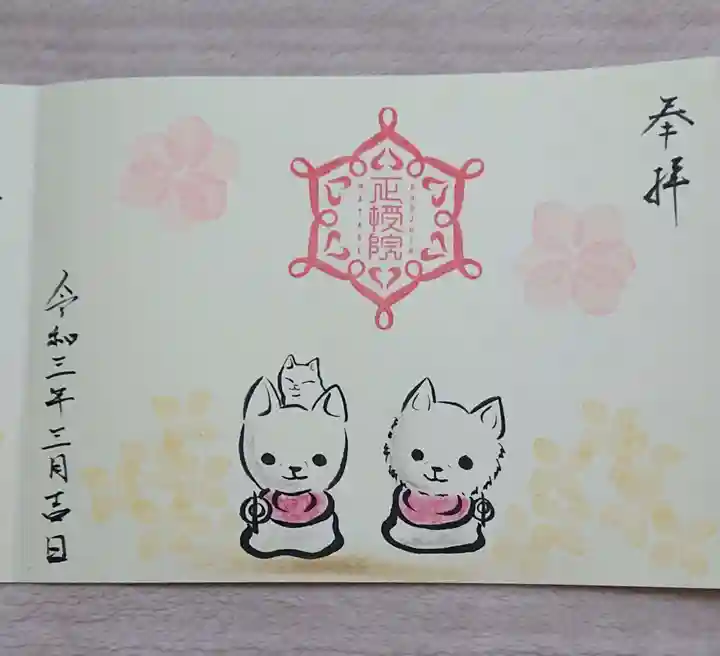 奉拝
正授院
令和三年三月吉日